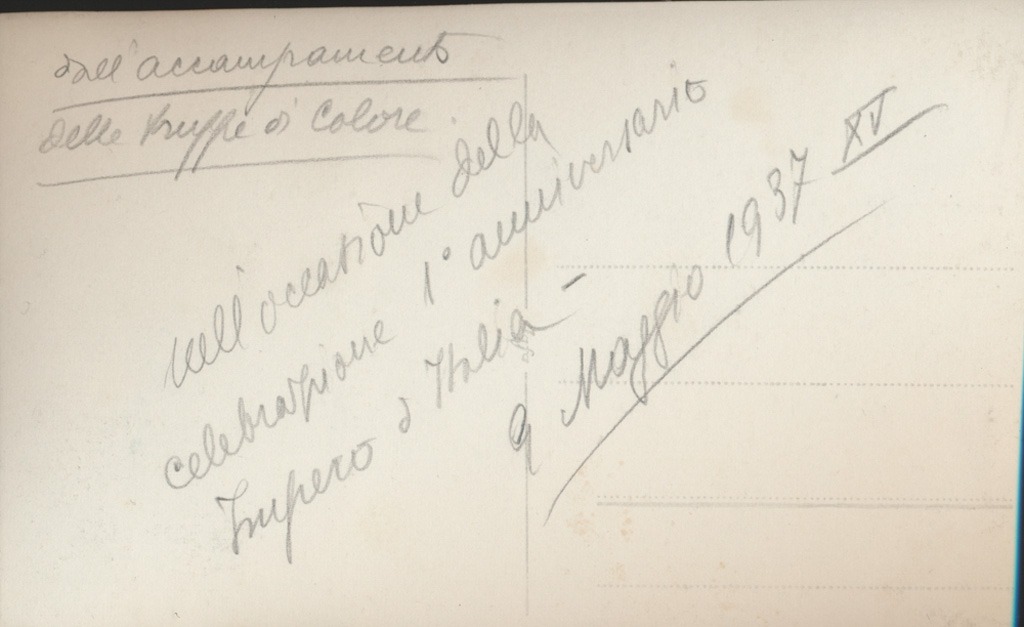 dall'accampamento
delle truppe di Colore.
nell'occasione della
celebrazione 1° anniversario
Impero d'Italia -
9 Maggio 1937 XV